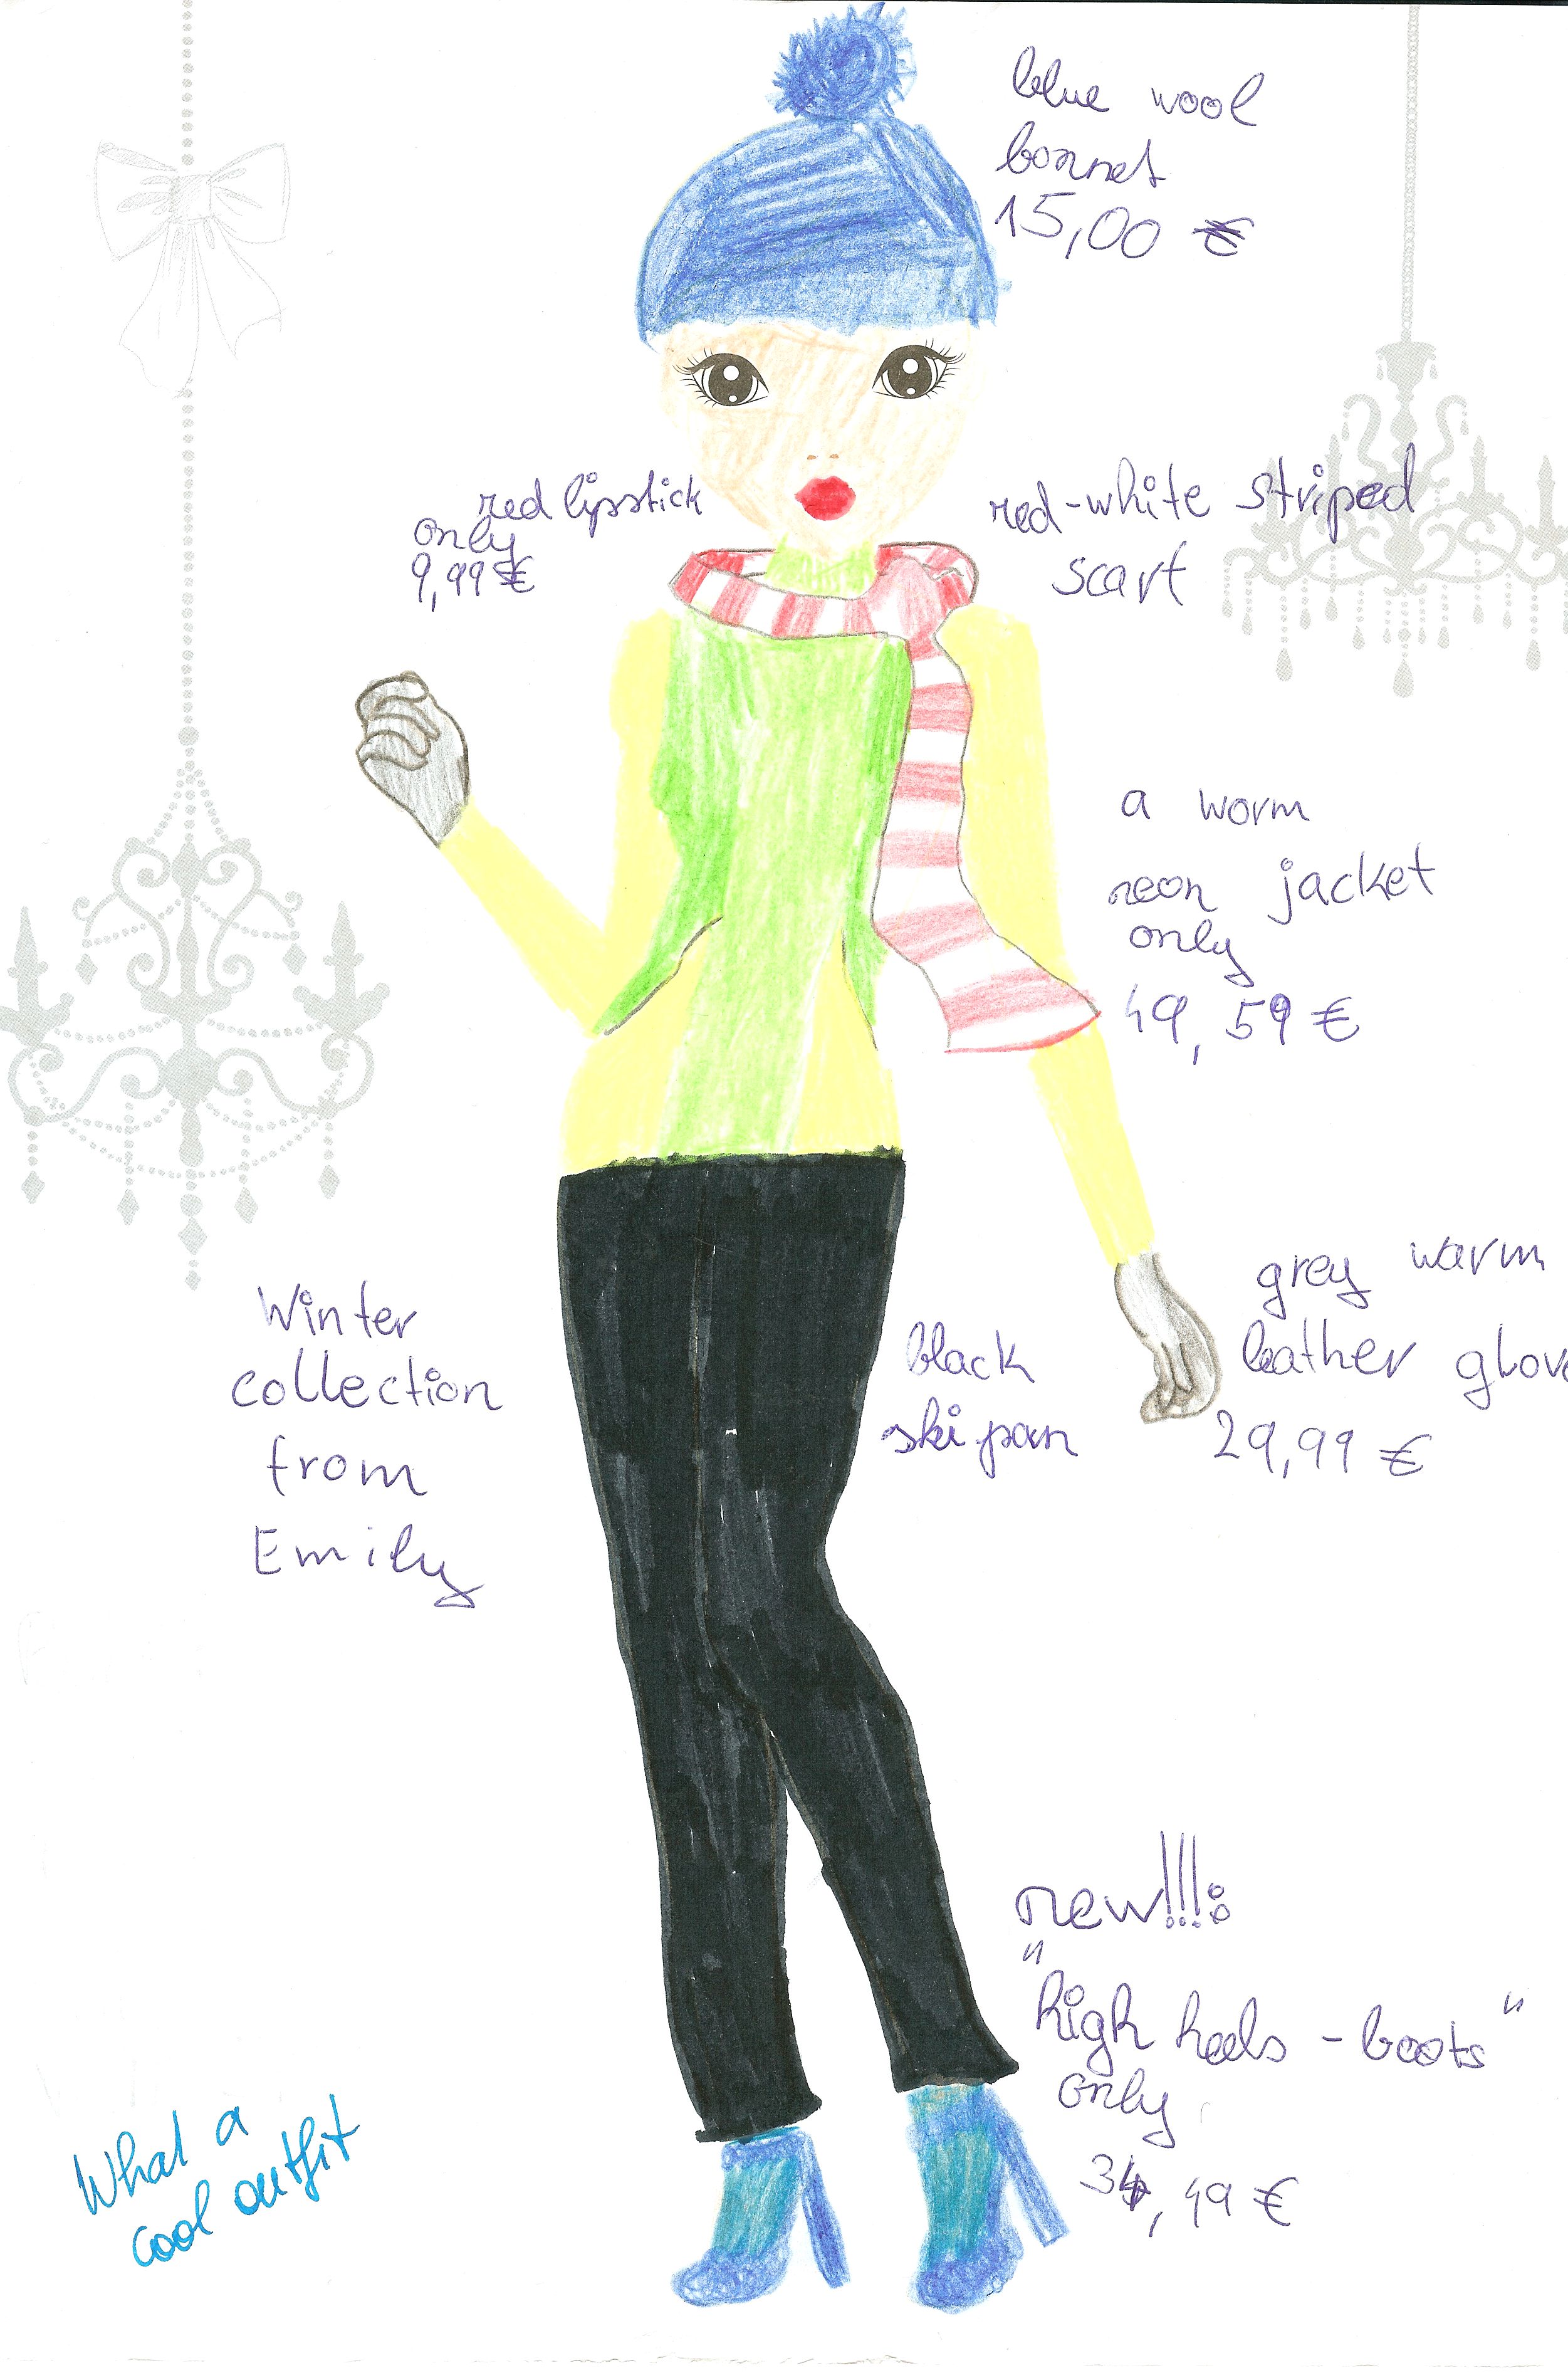 blue wool
bonnet
15,00 €
red lipstick
only
9,99 €
red-white striped
scarf
a worm
neon jacket
only
49,59 €
grey warm
leather glove
29,99 €
black
ski pan
Winter
collection
from
Emily
new!!!:
"high heels - boots"
only
34,49 €
What a
cool outfit